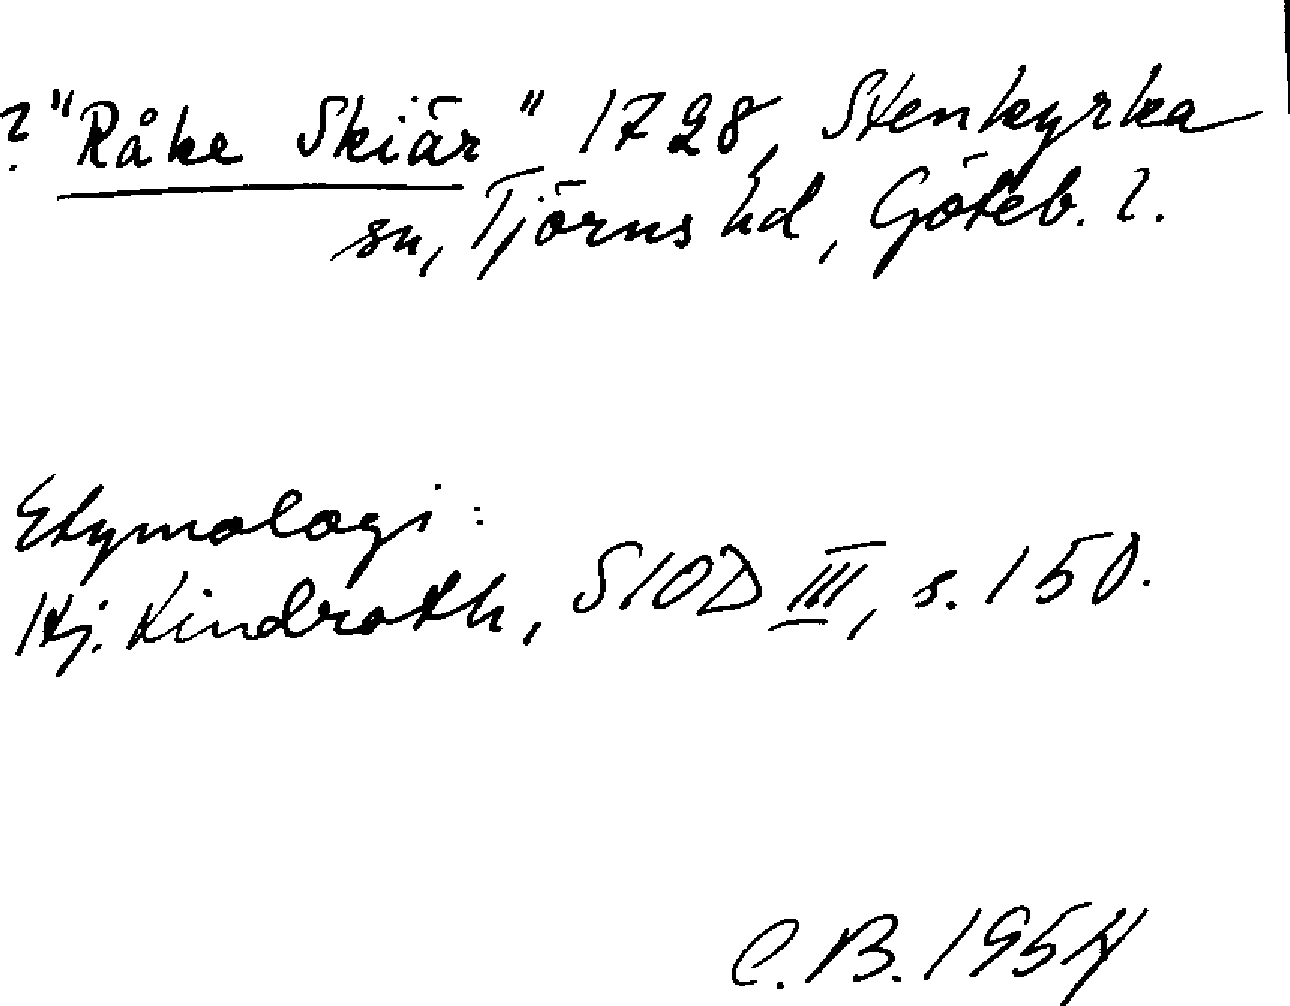 ? "Råke Skiär" 1728, Stenkyrka
sn, Tjörns hd, Göteb. l.
Etymologi:
Hj. Lindroth, SIOD III, s. 150.
C. B. 1954